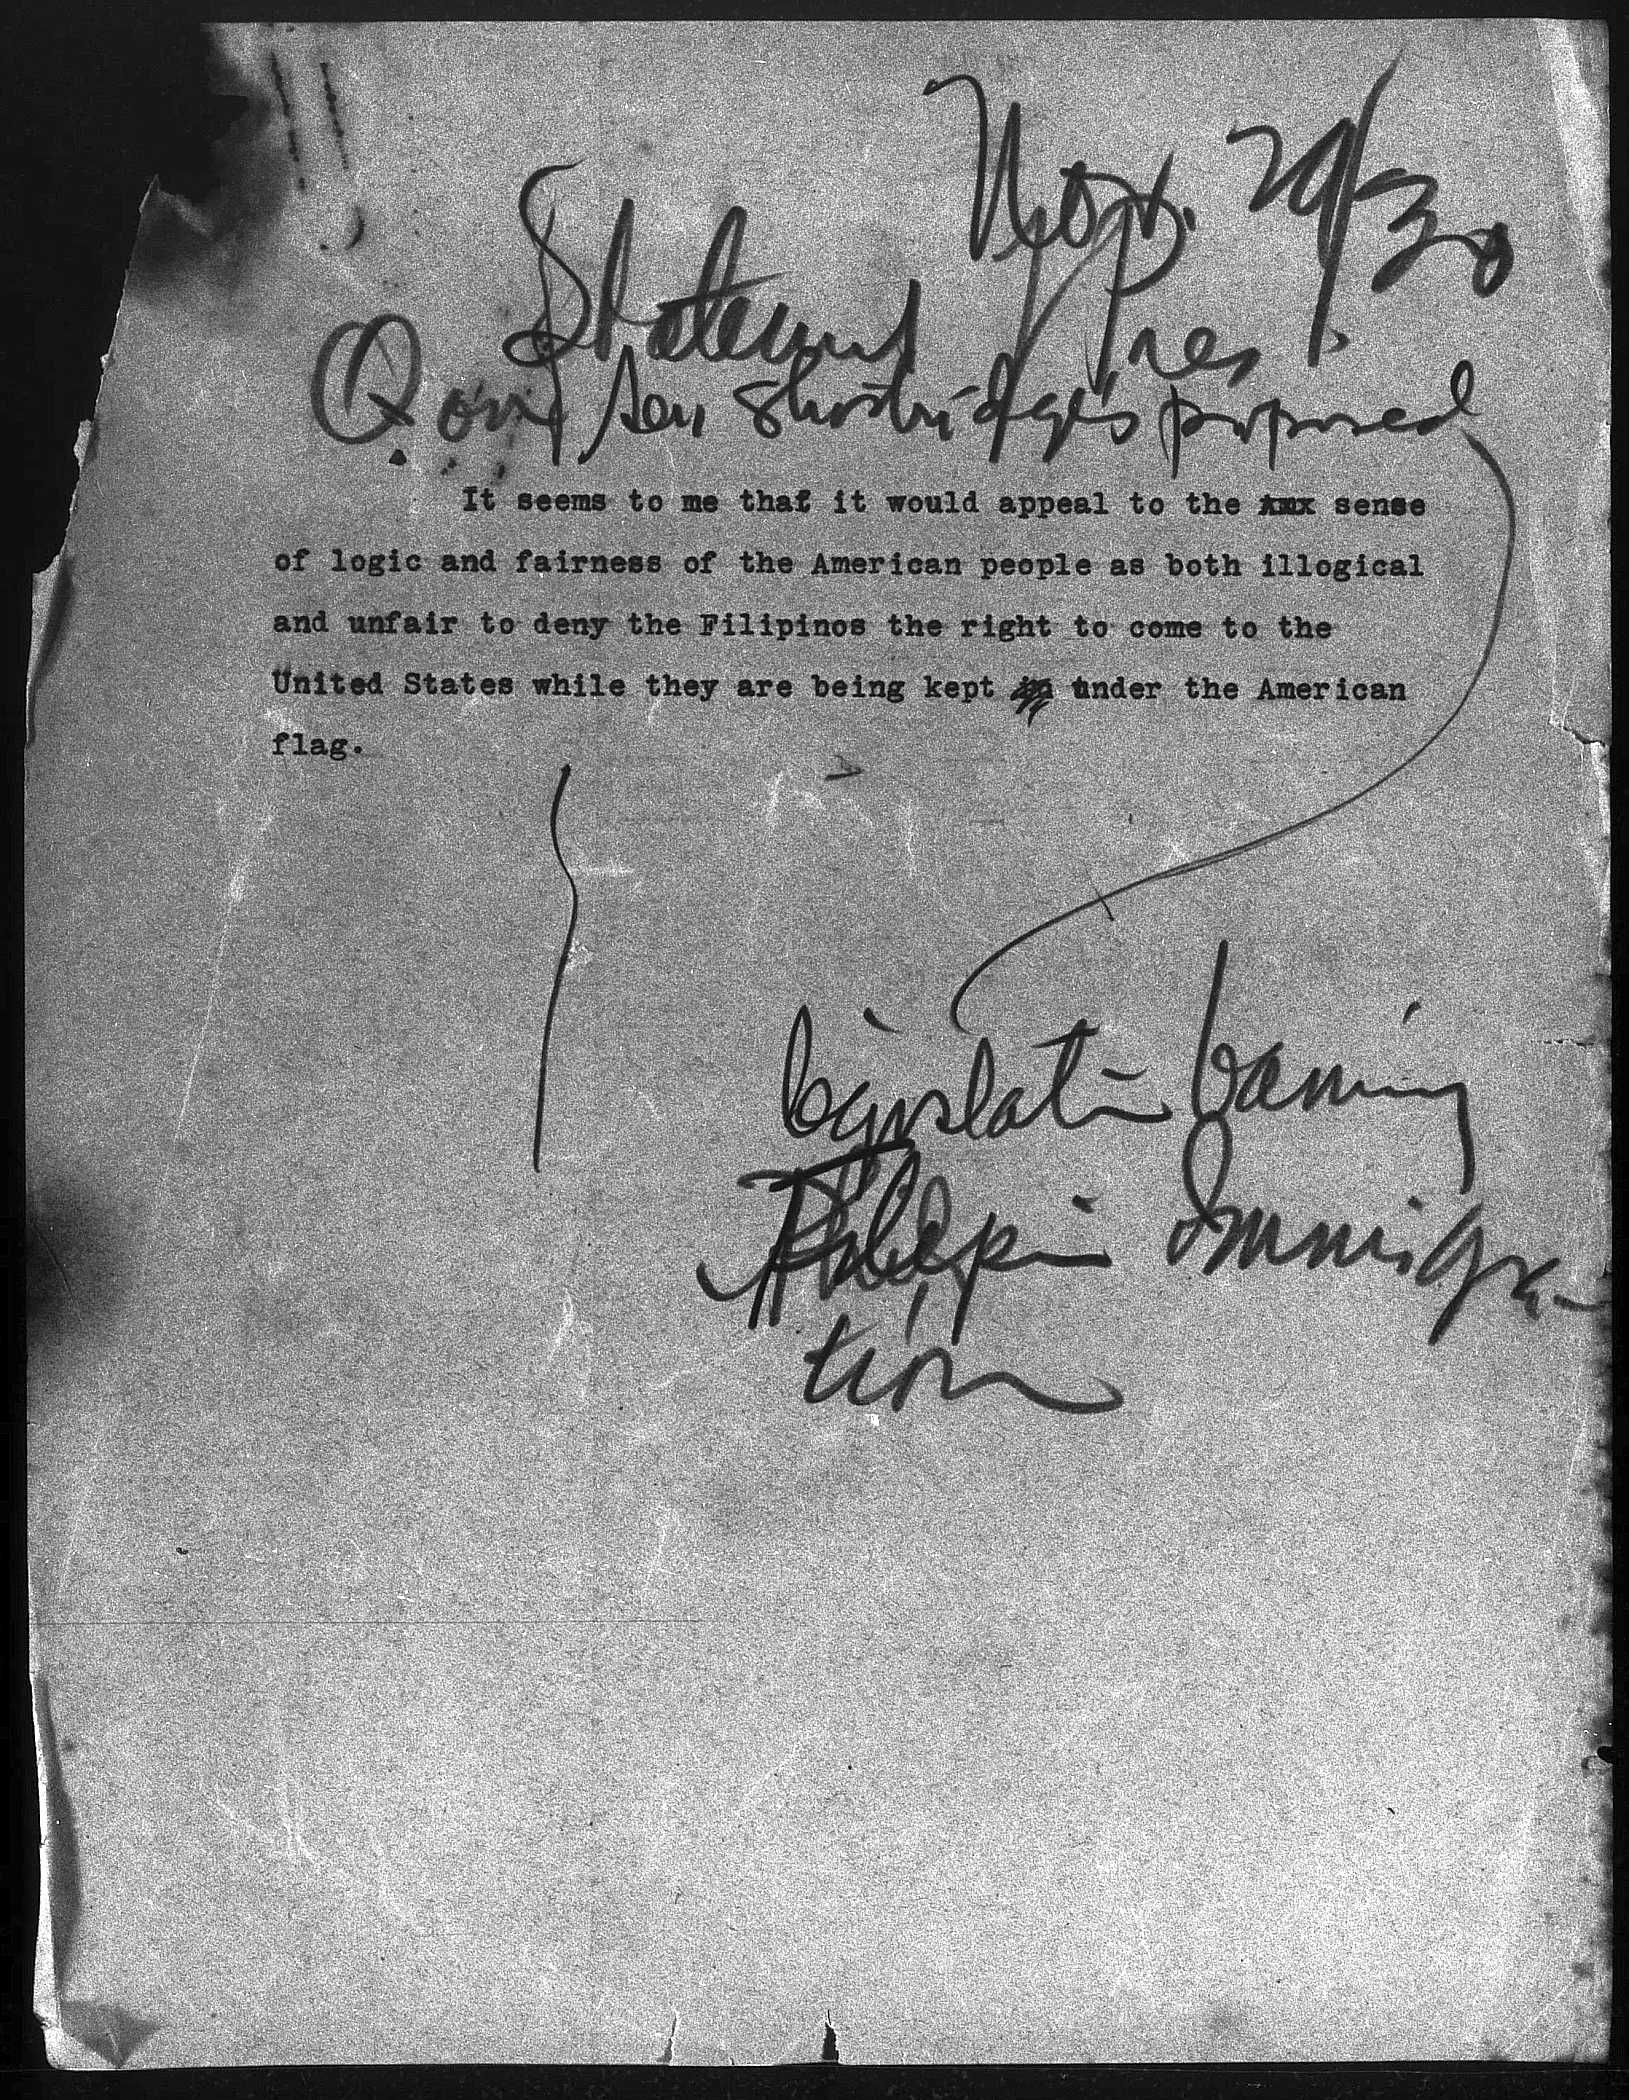 Nov. 29/30
Statement Pres.
Q on Sen Shortridge's proposed
It seems to me that it would appeal to the xxx sense
of logic and fairness of the American people as both illogical
and unfair to deny the Filipinos the right to come to the
United States while they are being kept under the American
flag.
legislation barring
Filipin Immigra-
tion